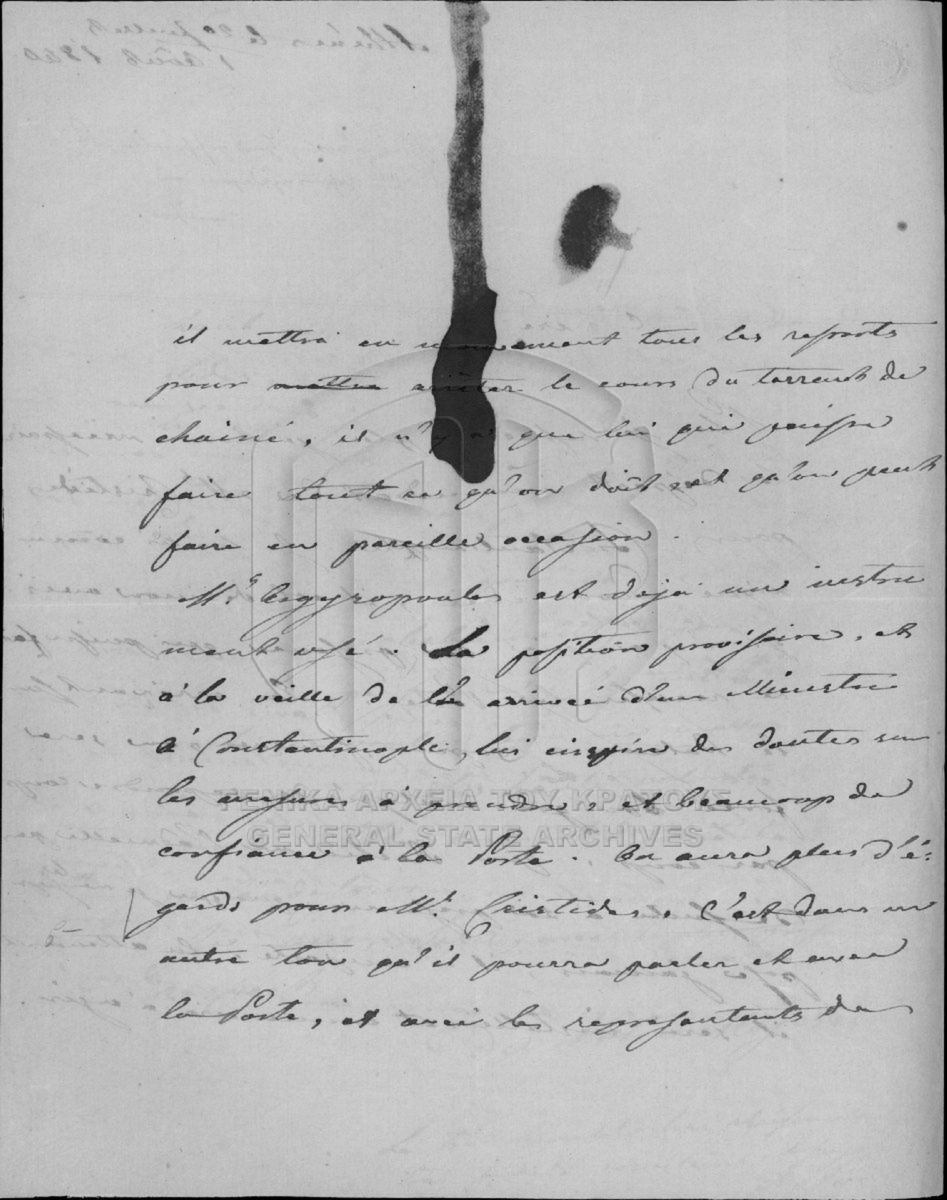 il mettra en mouvement tous les ressorts
pour mettre arrêter le cours du torrent de
chainé, il n'y a que lui qui puisse
faire tout ce qu'on doit, et qu'on peut
faire en pareille occasion.
Mr. Argyropoulos est déjà un instru
ment usé. La position provisoire, et
à la veille de l'arrivée d'un Ministre
à Constantinople, lui inspire des doutes sur
les mesures à prendre, et beaucoup de
confiance à la Porte. On aura plus d'é-
gards pour Mr. Cristides. C'est dans un
autre ton qu'il pourra parler et avec
la Porte, et avec les représentants de
ΓΕΝΙΚΑ ΑΡΧΕΙΑ ΤΟΥ ΚΡΑΤΟΥΣ
GENERAL STATE ARCHIVES